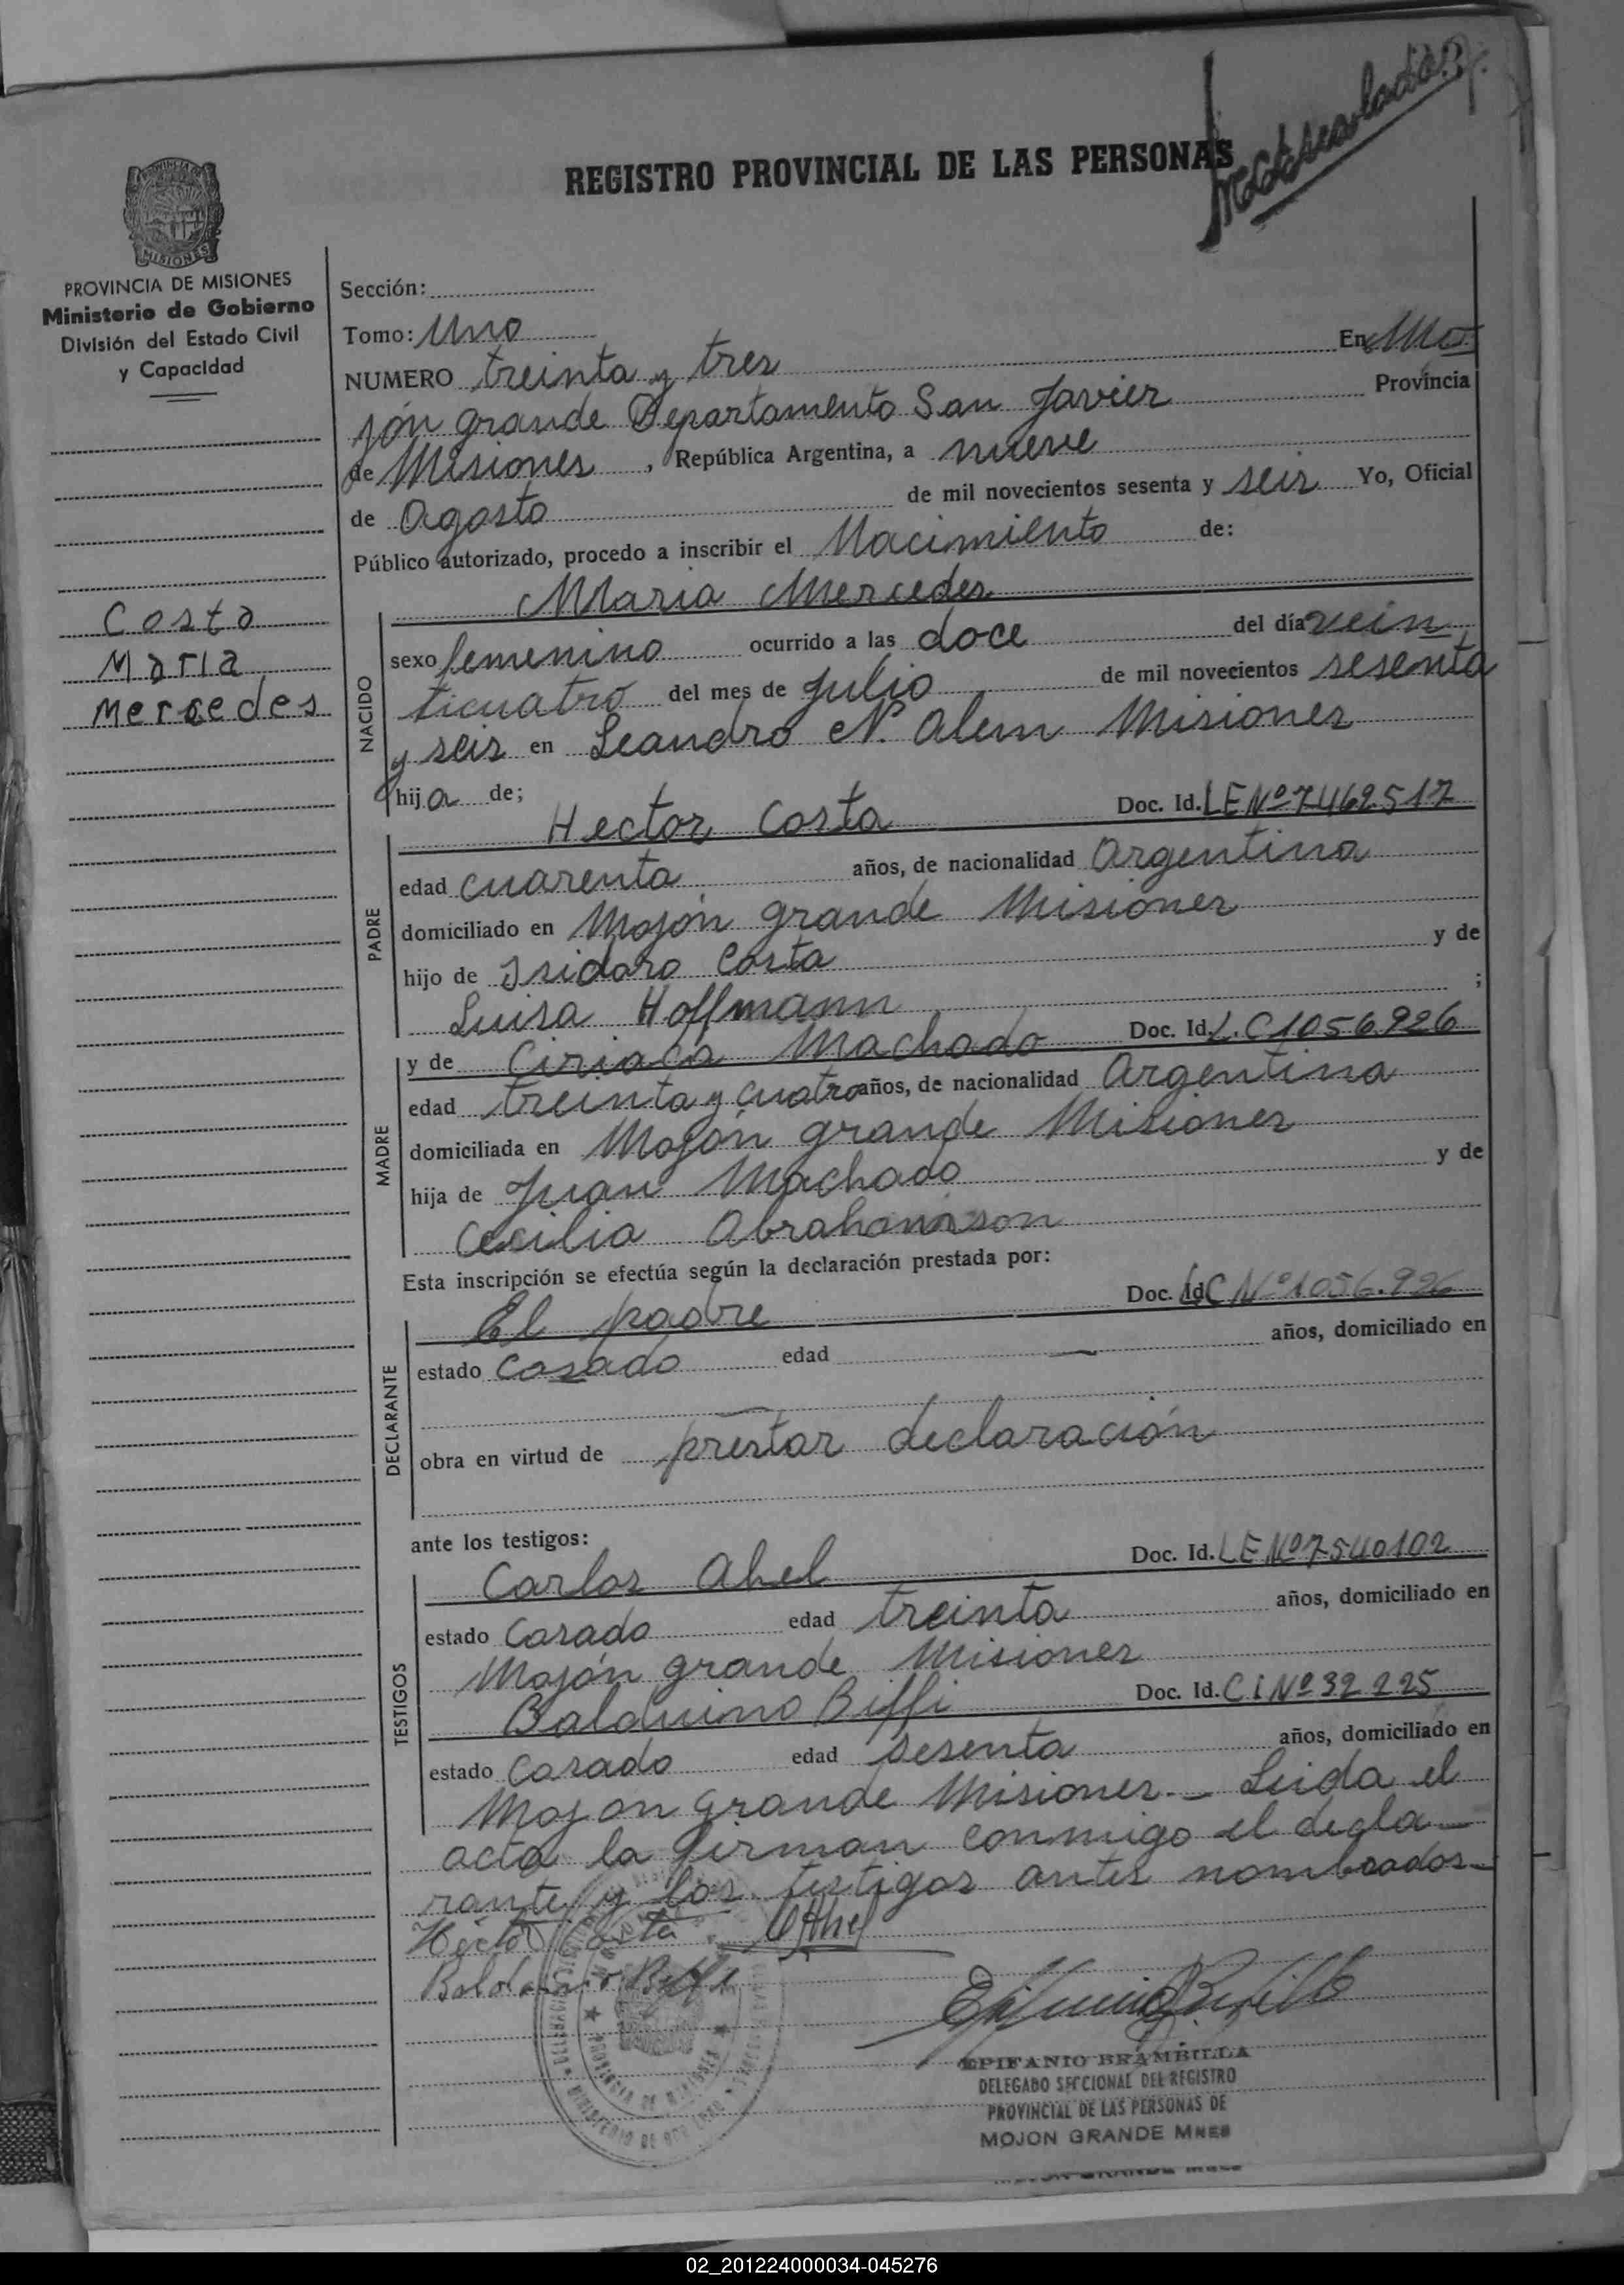 Matriculado
REGISTRO PROVINCIAL DE LAS PERSONAS
PROVINCIA DE MISIONES
Ministerio de Gobierno
División del Estado Civil
y Capacidad
Costa
Maria
Mercedes
Sección:
Tomo: Uno
NUMERO treinta y tres En Mo
jón grande Departamento San Javier Provincia
de Misiones, República Argentina, a nueve
de Agosto de mil novecientos sesenta y seis Yo, Oficial
Público autorizado, procedo a inscribir el Nacimiento de:
NACIDO
Maria Mercedes
sexo femenino ocurrido a las doce del día vein
ticuatro del mes de Julio de mil novecientos sesenta
y seis en Leandro N. Alem Misiones
hija de;
PADRE
Hector Costa Doc. Id. LE Nº 7462517
edad cuarenta años, de nacionalidad Argentina
domiciliado en Mojón grande Misiones
hijo de Isidoro Costa y de
Luisa Hoffmann ;
MADRE
y de Ciriaca Machado Doc. Id. L.C 1056.926
edad treinta y cuatro años, de nacionalidad Argentina
domiciliada en Mojón grande Misiones
hija de Juan Machado y de
Cecilia Abrahamson
Esta inscripción se efectúa según la declaración prestada por:
DECLARANTE
El padre Doc. Id. LC Nº 1056.926
estado casado edad — años, domiciliado en
—
obra en virtud de prestar declaración
ante los testigos:
TESTIGOS
Carlos Ahel Doc. Id. LE Nº 7540102
estado Casado edad treinta años, domiciliado en
Mojón grande Misiones
Balduino Biffi Doc. Id. C I Nº 32.225
estado Casado edad sesenta años, domiciliado en
Mojon grande Misiones.- Leida el
acta la firman conmigo el decla-
rante y los testigos antes nombrados.-
Hector Costa CAhel
Balduino Biffi
PROVINCIA DE MISIONES
MINISTERIO DE GOBIERNO
EPIFANIO BRAMBILLA
DELEGADO SECCIONAL DEL REGISTRO
PROVINCIAL DE LAS PERSONAS DE
MOJON GRANDE MNES
02_201224000034-045276